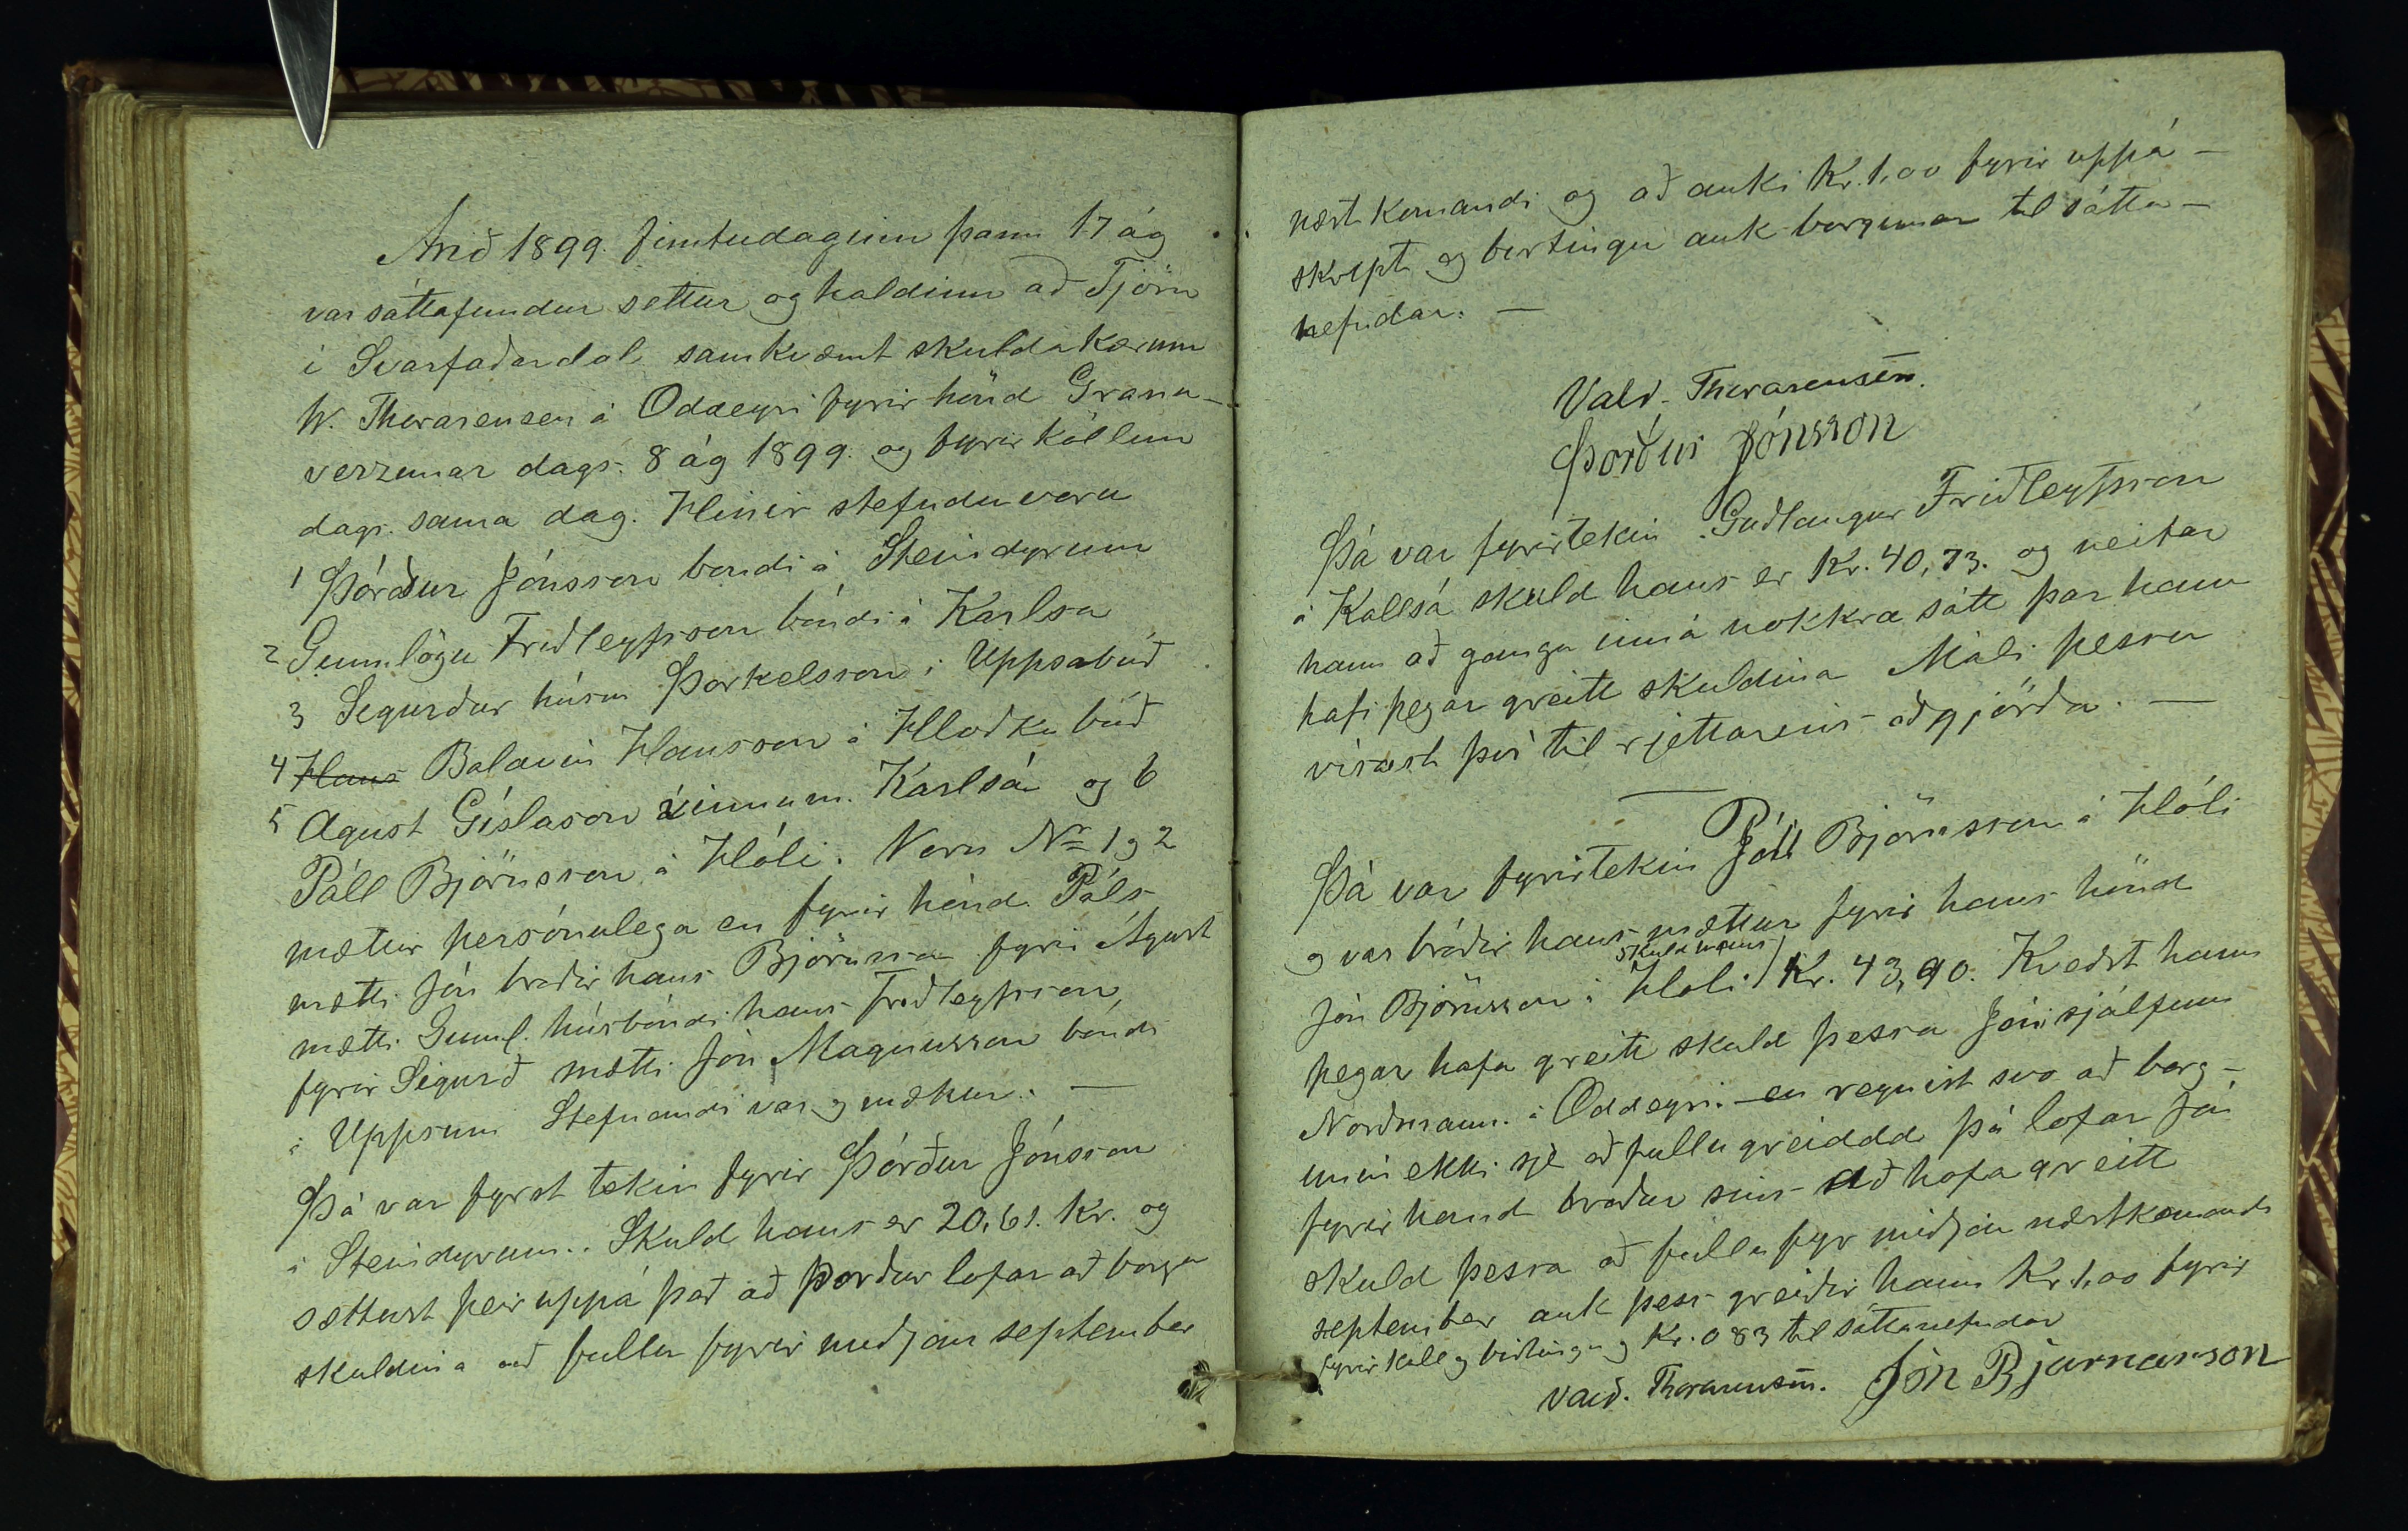 Árið 1899. fimtudaginn þann 17 ág
var sáttafundur settur og haldinn að Tjörn
í Svarfaðardal samkvæmt skuldakærum
W. Thorarensen á Oddeyri fyrir hönd Granu-
verzunar dags. 8 ág 1899. og fyrirköllun
dags. sama dag. Hinir stefndu voru
1 Þórður Jónsson bondi á Steindyrum
2 Gunnlögu Friðleifsson bóndi á Karlsa
3 Sigurður húsm Þorkelsson í Uppsabúð
4 Hans Balavin Hansson á Hlaðkabúð
5 Agust Gíslason vinnum. Karlsá og 6
Páll Björnsson á Hóli. Voru No 1 og 2
mættir persónulega en fyrir hönd Páls
mætti Jón broðir hans Björnsson fyrir Águst
mætti Gunnl. húsbóndi hans Friðleifsson,
fyrir Sigurð mætti Jón Magnusson bóndi
á Uppsum Stefnandi var og mættur. —
Þá var fyrst tekin fyrir Þórður Jónsson
á Steindyrum.. Skuld hans er 20,61. Kr. og
sættust þeir uppá það að Þorður lofar að borga
skuldina að fullu fyrir miðjan september
næst komandi og að auki Kr. 1,00 fyrir uppá-
skript og birtingu auk borgunar til sátta-
nefndar. —
Vald. Thorarensen.
Þorður Jónsson
Þá var fyrirtekin Guðlaugur Friðleifsson
á Kallsá skuld hans er Kr. 40,73. og neitar
hann að ganga inná nokkra sátt þar hann
hafi þegar greitt skuldina Máli þessu
vísast því til rjettarins aðgjörða. —
Þá var fyrirtekin Páll Björnsson á Hóli
og var bróðir hans mættur fyrir hans hönd
Jón Björnsson á Hóli skuld hans Kr. 43,90. Kveðst hann
þegar hafa greitt skuld þessa Jóni sjálfum
Norðmann. á Oddeyri - en reynist svo að borg-
unin ekki sje að fullu greiddd þá lofar Jón
fyrir hand broður sins að hafa greitt
skuld þessa að fullu fyr miðjan næstkomandi
september auk þess greiðir hann Kr 1,00 fyrir
fyrirkall og birtingu og Kr. 083 til sáttanefndar
Vald. Thorarensen. Jón Bjarnarson